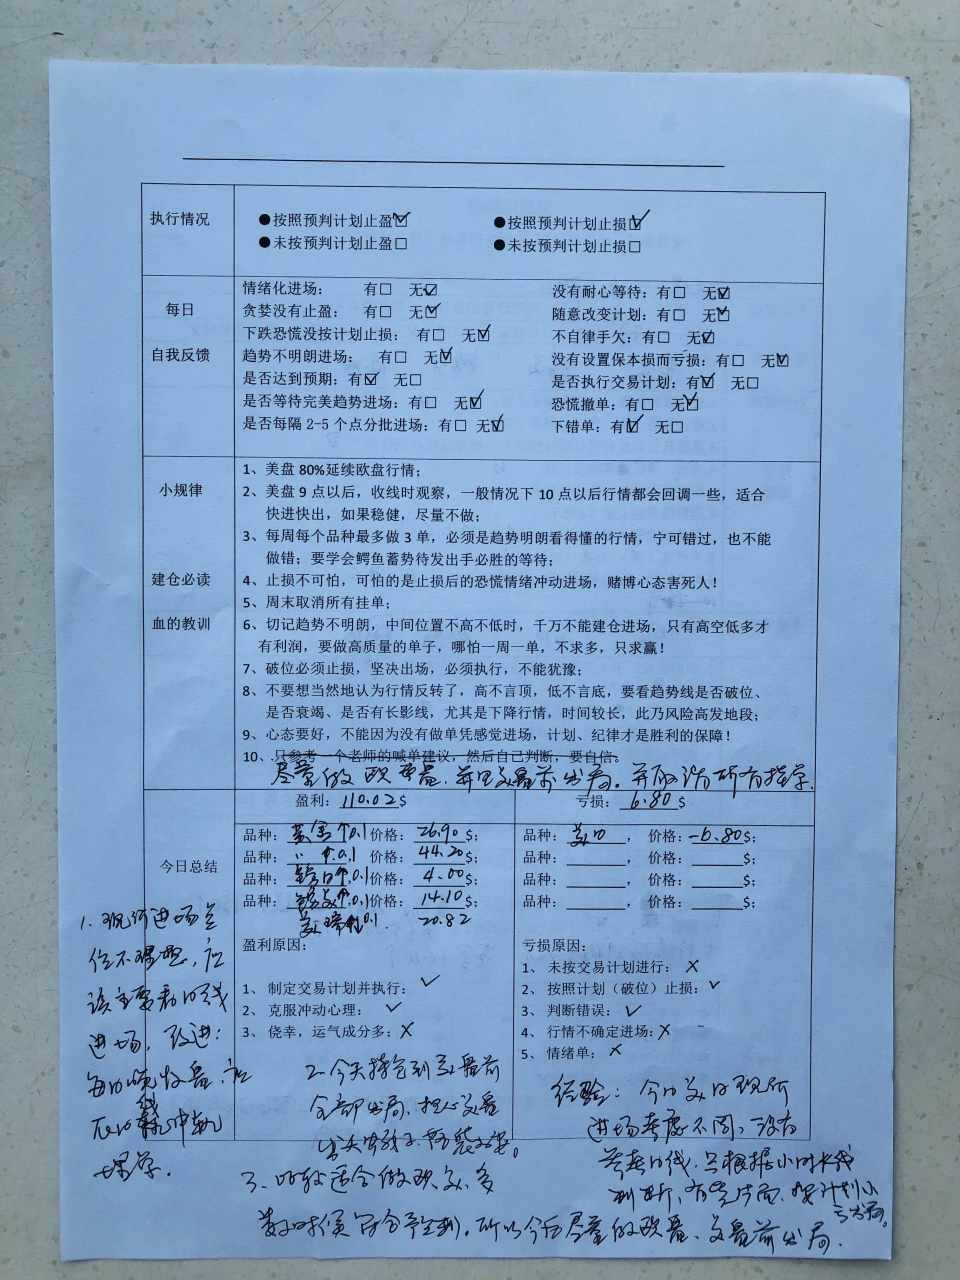 执行情况
●按照预判计划止盈☑ ●按照预判计划止损☑
●未按预判计划止盈□ ●未按预判计划止损□
每日
自我反馈
情绪化进场： 有□ 无☑ 没有耐心等待：有□ 无☑
贪婪没有止盈： 有□ 无☑ 随意改变计划：有□ 无☑
下跌恐慌没按计划止损： 有□ 无☑ 不自律手欠：有□ 无☑
趋势不明朗进场： 有□ 无☑ 没有设置保本损而亏损：有□ 无☑
是否达到预期：有☑ 无□ 是否执行交易计划：有☑ 无□
是否等待完美趋势进场：有□ 无☑ 恐慌撤单：有□ 无☑
是否每隔 2-5 个点分批进场：有□ 无☑ 下错单：有☑ 无□
小规律
建仓必读
血的教训
1、美盘 80%延续欧盘行情；
2、美盘 9 点以后，收线时观察，一般情况下 10 点以后行情都会回调一些，适合
快进快出，如果稳健，尽量不做；
3、每周每个品种最多做 3 单，必须是趋势明朗看得懂的行情，宁可错过，也不能
做错；要学会鳄鱼蓄势待发出手必胜的等待；
4、止损不可怕，可怕的是止损后的恐慌情绪冲动进场，赌博心态害死人！
5、周末取消所有挂单；
6、切记趋势不明朗，中间位置不高不低时，千万不能建仓进场，只有高空低多才
有利润，要做高质量的单子，哪怕一周一单，不求多，只求赢！
7、破位必须止损，坚决出场，必须执行，不能犹豫；
8、不要想当然地认为行情反转了，高不言顶，低不言底，要看趋势线是否破位、
是否衰竭、是否有长影线，尤其是下降行情，时间较长，此乃风险高发地段；
9、心态要好，不能因为没有做单凭感觉进场，计划、纪律才是胜利的保障！
10、只参考一个老师的喊单建议，然后自己判断，要自信。
尽量做欧盘，并且美盘前出局。并取消所有挂单.
今日总结
盈利：110.02$ 亏损：6.80$
品种：黄金↑0.1 价格：26.90$； 品种：美日， 价格：-6.80$；
品种：〃 ↑0.1 价格：44.20$； 品种： ， 价格： $；
品种：日↑0.1 价格：4.00$； 品种： ， 价格： $；
品种：美↑0.1 价格：14.10$； 品种： ， 价格： $；
美瑞0.1 20.82
盈利原因： 亏损原因：
1、制定交易计划并执行：✓
2、克服冲动心理：✓
3、侥幸，运气成分多：✗
1、未按交易计划进行：✗
2、按照计划（破位）止损：✓
3、判断错误：✓
4、行情不确定进场：✗
5、情绪单：✗
1.现所进场点
位不理想，应
该主要看日线
进场，改进：
每日收盘，应
2.今天持仓到美盘前
全部出局，担心美盘
3、比较适合做欧美、
所以今后尽量做欧盘、美盘前出局.
经验：今日美日现所
进场考虑不周，没有
参考日线，只根据小时线
判断，有些片面，按计划小
亏出局。